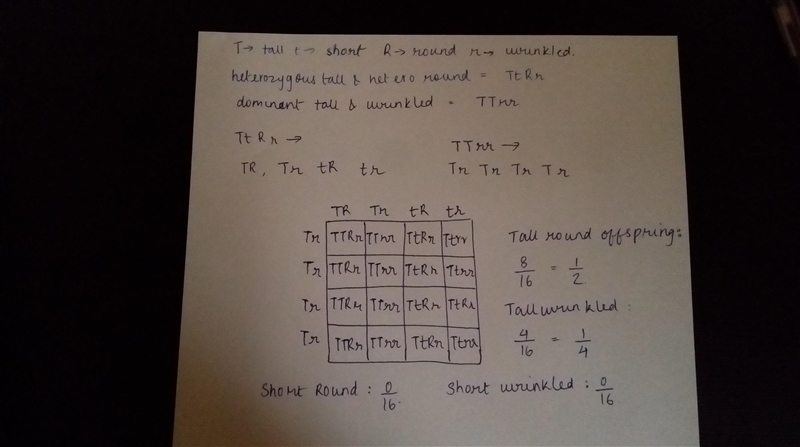 T → tall t → short R → round r → wrinkled.
heterozygous tall & hetero round = TtRr
dominant tall & wrinkled = TTrr
TtRr → TTrr →
TR, Tr tR tr Tr Tr Tr Tr
TR Tr tR tr
Tr TTRr TTrr TtRr Ttrr Tall round offspring:
Tr TTRr TTrr TtRr Ttrr 8/16 = 1/2
Tr TTRr TTrr TtRr TtRr Tall wrinkled:
Tr TTRr TTrr TtRr Ttrr 4/16 = 1/4
Short Round: 0/16. Short wrinkled: 0/16